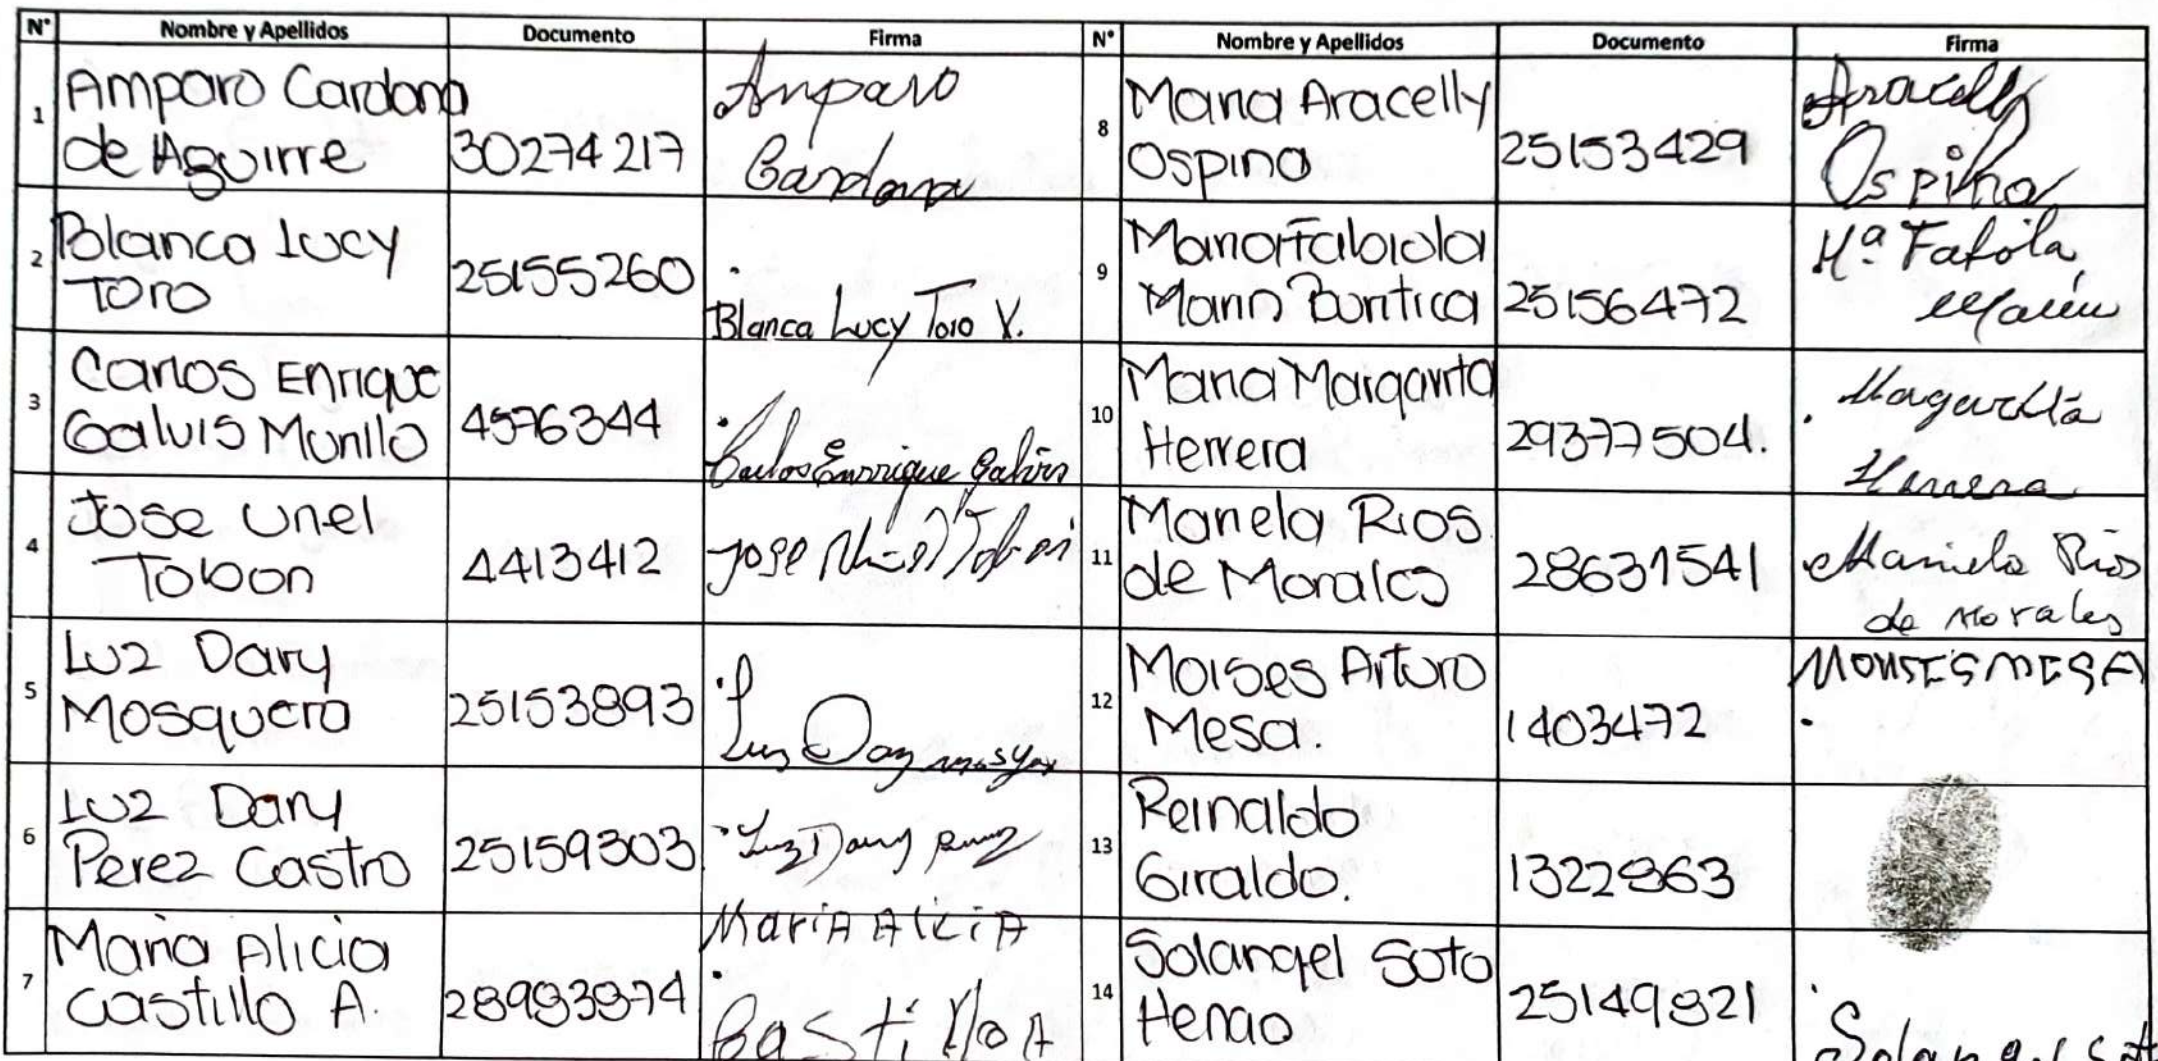 N° Nombre y Apellidos Documento Firma N° Nombre y Apellidos Documento Firma
1
Amparo Cardona
de Aguirre
30274217
Amparo
Cardona
2
Blanca Lucy
Toro
25155260
Blanca Lucy Toro V.
3
Carlos Enrique
Galvis Murillo
4576344
Carlos Enrrique Galvis
4
Jose Uriel
Tobon
4413412
Jose Uriel Tobon
5
Luz Dary
Mosquera
25153893
Luz Day
6
Luz Dary
Perez Castro
25159303
Luz Dary Perez
7
Maria Alicia
Castillo A.
28983874
Maria Alicia
Castillo A
8
Maria Aracelly
Ospina
25153429
Aracelly
Ospina
9
Maria Fabiola
Marin Buritica
25156472
Mª Fabiola
Marin
10
Maria Margarita
Herrera
29377504.
Magarita
Herrera
11
Mariela Rios
de Morales
28631541
Mariela Rios
de Morales
12
Moises Arturo
Mesa.
1403472
MOISES MESA
13
Reinaldo
Giraldo.
1322863
14
Solangel Soto
Henao
25149821